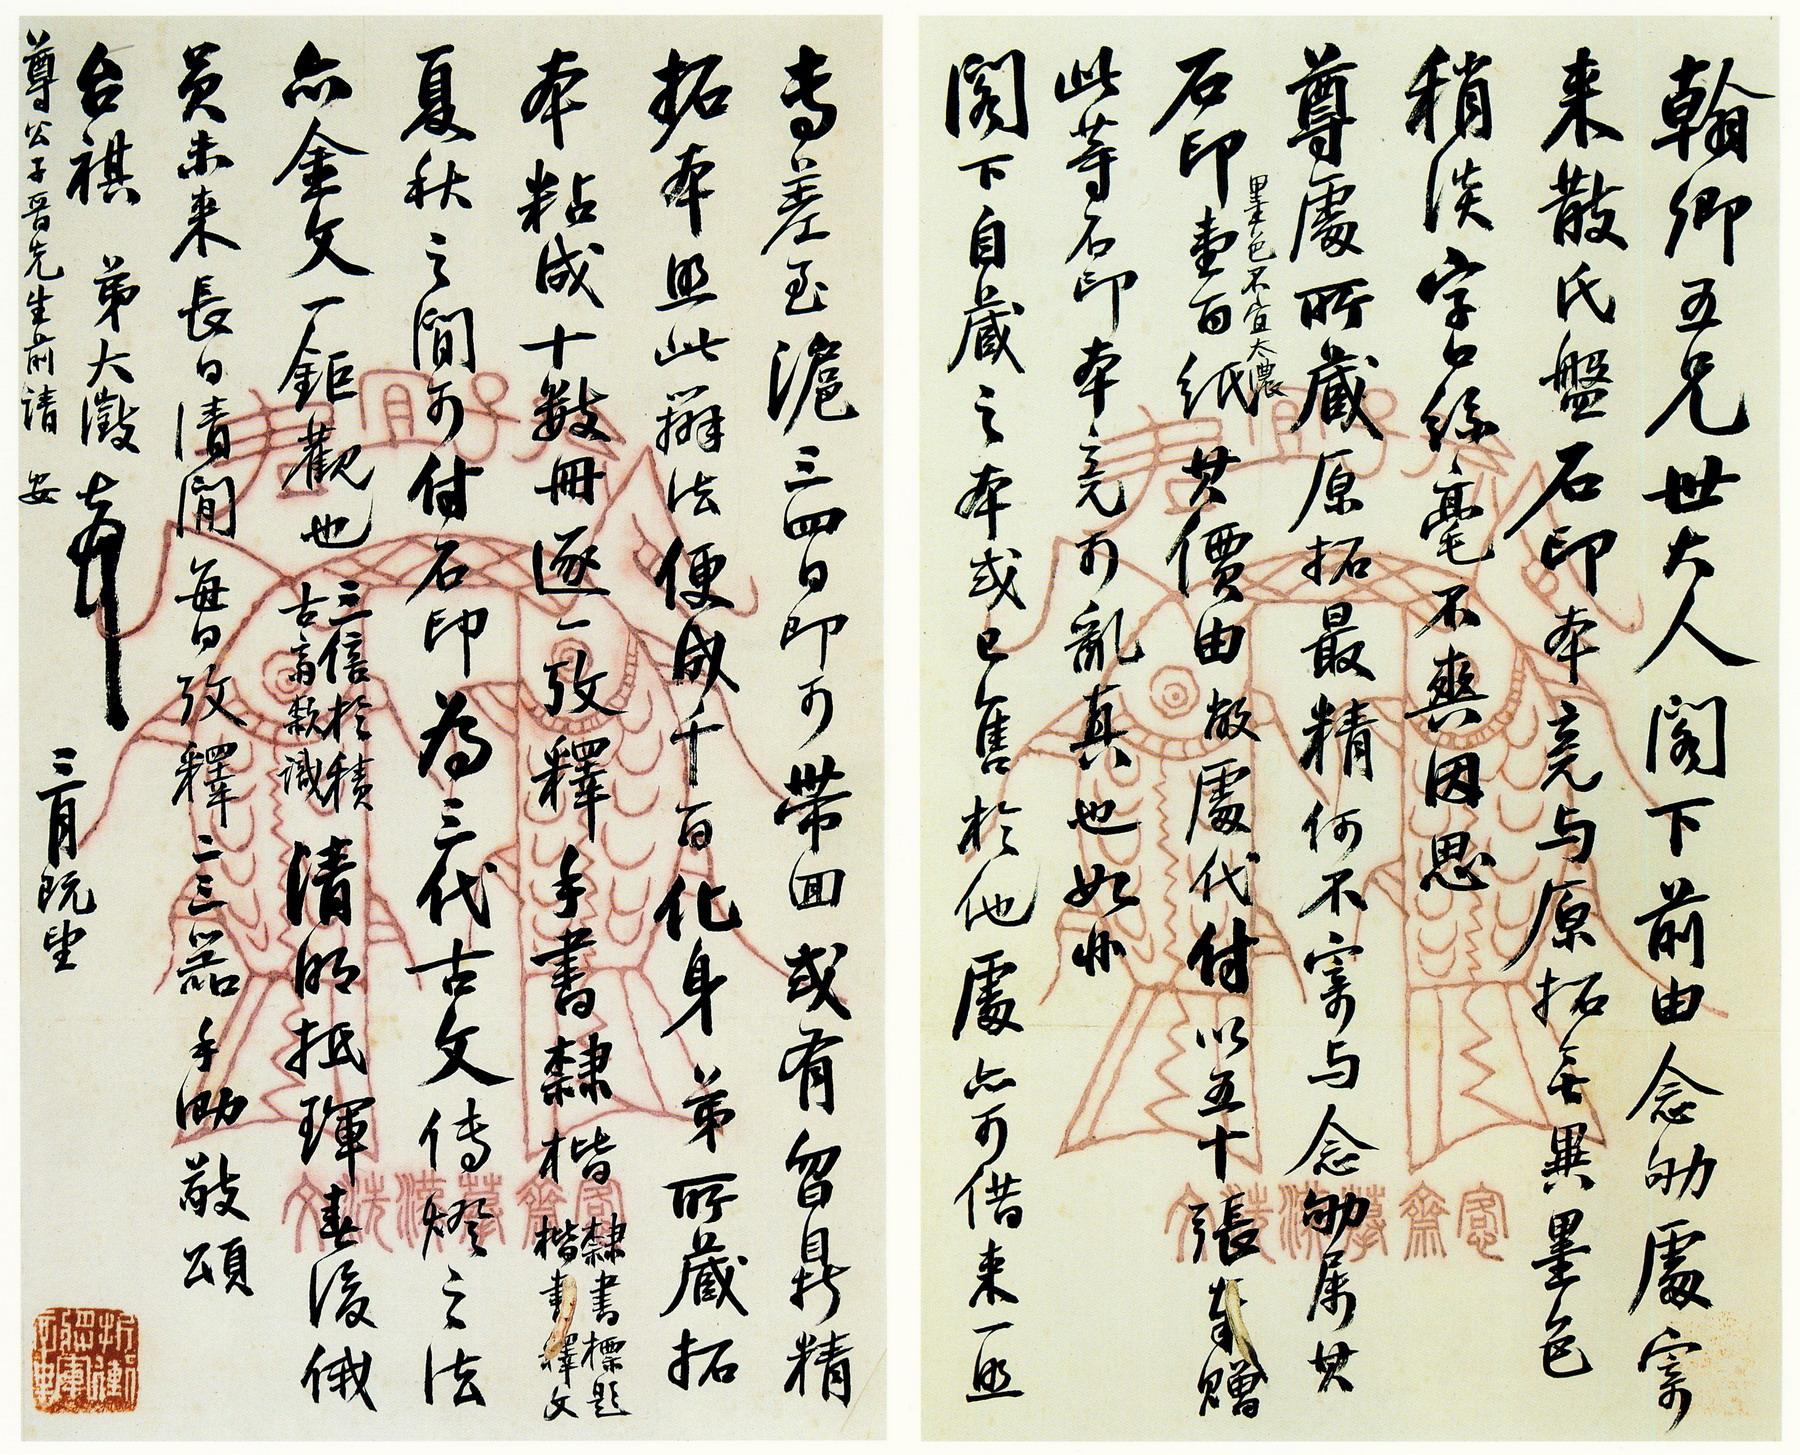 翰卿五兄世大人閣下前由念劬處寄
来散氏盤石印本竟与原拓無異墨色
稍淡字口絲毫不爽因思
尊處所藏原拓最精何不寄与念劬属其
石印壹百紙墨色不宜太濃其價由敝處代付以五十張奉贈
此等石印本竟可亂真也如此
閣下自藏之本或已售於他處亦可借来一照
専差至滬三四日即可帶回或有留鼎精
拓本照此辦法便成千百化身弟所藏拓
本粘成十數冊逐一攷釋手書隸楷隸書標題楷書釋文
夏秋之間可付石印為三代古文傳燈之法
亦金文一鉅觀也三信於積古齋款識清明抵琿春後俄
員未来長日清閒每日攷釋二三器手泐敬頌
台祺 弟大澂頓首
三月既望
尊公子晋先生前請安
愙齋摹漢洗文